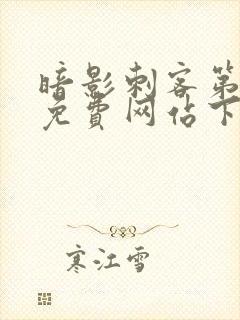 暗影刺客第
免費网佔下
寒江雪